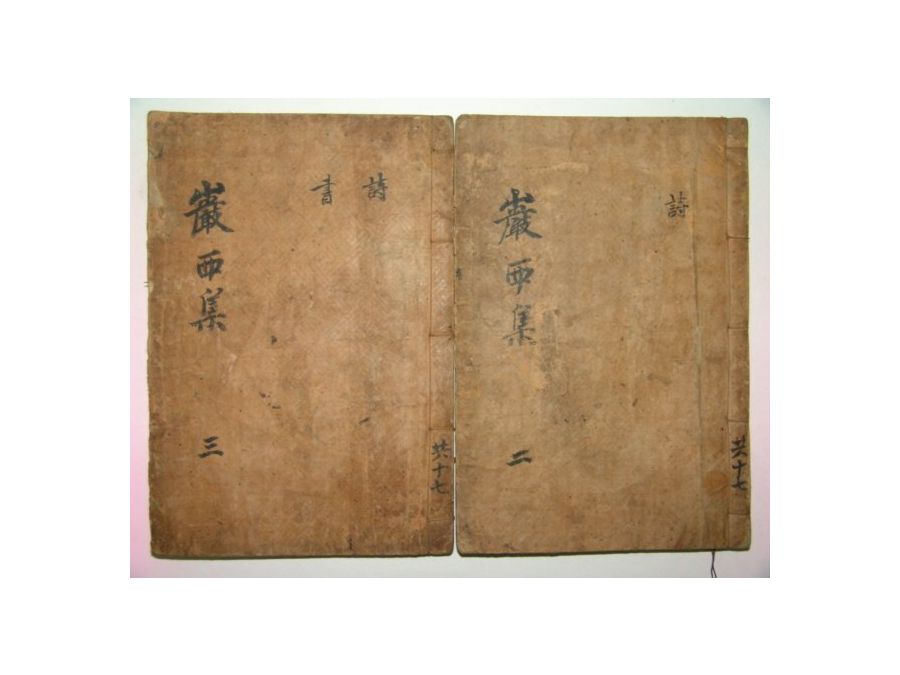 詩
巖西集
二
共十七
詩
書
巖西集
三
共十七